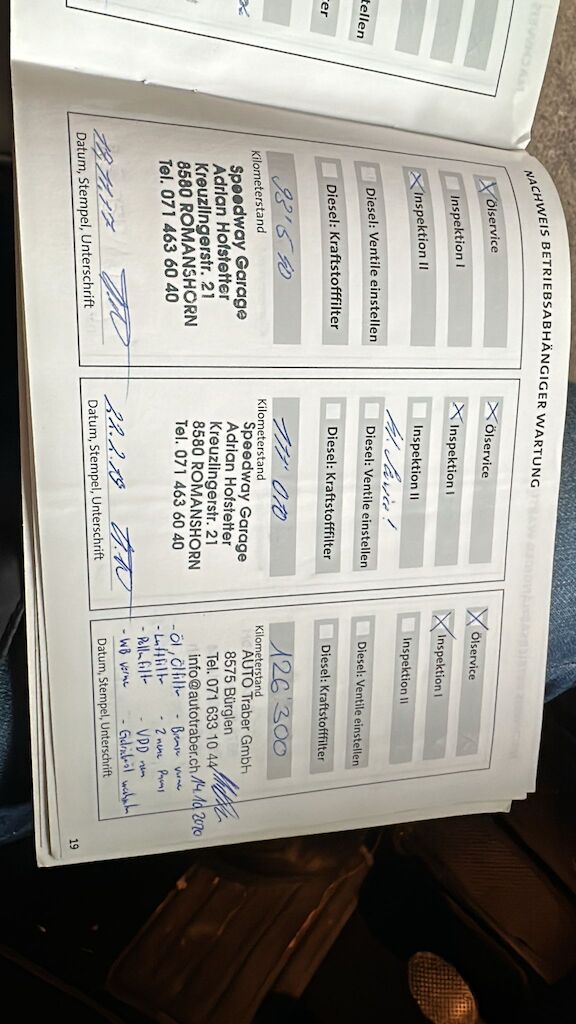 NACHWEIS BETRIEBSABHÄNGIGER WARTUNG
Ölservice
Inspektion I
Inspektion II
Diesel: Ventile einstellen
Diesel: Kraftstofffilter
Kilometerstand
Speedway Garage
Adrian Hofstetter
Kreuzlingerstr. 21
8580 ROMANSHORN
Tel. 071 463 60 40
Datum, Stempel, Unterschrift
Ölservice
Inspektion I
Inspektion II
Diesel: Ventile einstellen
Diesel: Kraftstofffilter
Kilometerstand
111'010
Speedway Garage
Adrian Hofstetter
Kreuzlingerstr. 21
8580 ROMANSHORN
Tel. 071 463 60 40
Datum, Stempel, Unterschrift
Ölservice
Inspektion I
Inspektion II
Diesel: Ventile einstellen
Diesel: Kraftstofffilter
126'300
Kilometerstand
AUTO Traber GmbH
8575 Bürglen
Tel. 071 633 10 44
info@autotraber.ch 14.10.2020
- Öl, Ölfilter
- Luftfilter
- Pollenfilter - VDD neu
Datum, Stempel, Unterschrift
19